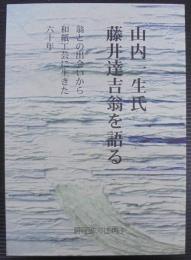 山内一生氏
藤井達吉翁を語る
翁との出会いから
和紙工芸に生きた
六十年